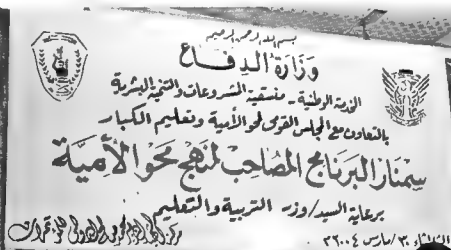 بسم الله الرحمن الرحيم
وزارة الدفاع
الخدمة الوطنية - منسقية المشروعات والتنمية البشرية
بالتعاون مع المجلس القومى لمحو الأمية وتعليم الكبار
سمنار البرنامج المصاحب لمنهج محو الأمية
برعاية السيد/وزير التربية والتعليم
الثلاثاء ٣٠/مارس ٢٠٠٤م